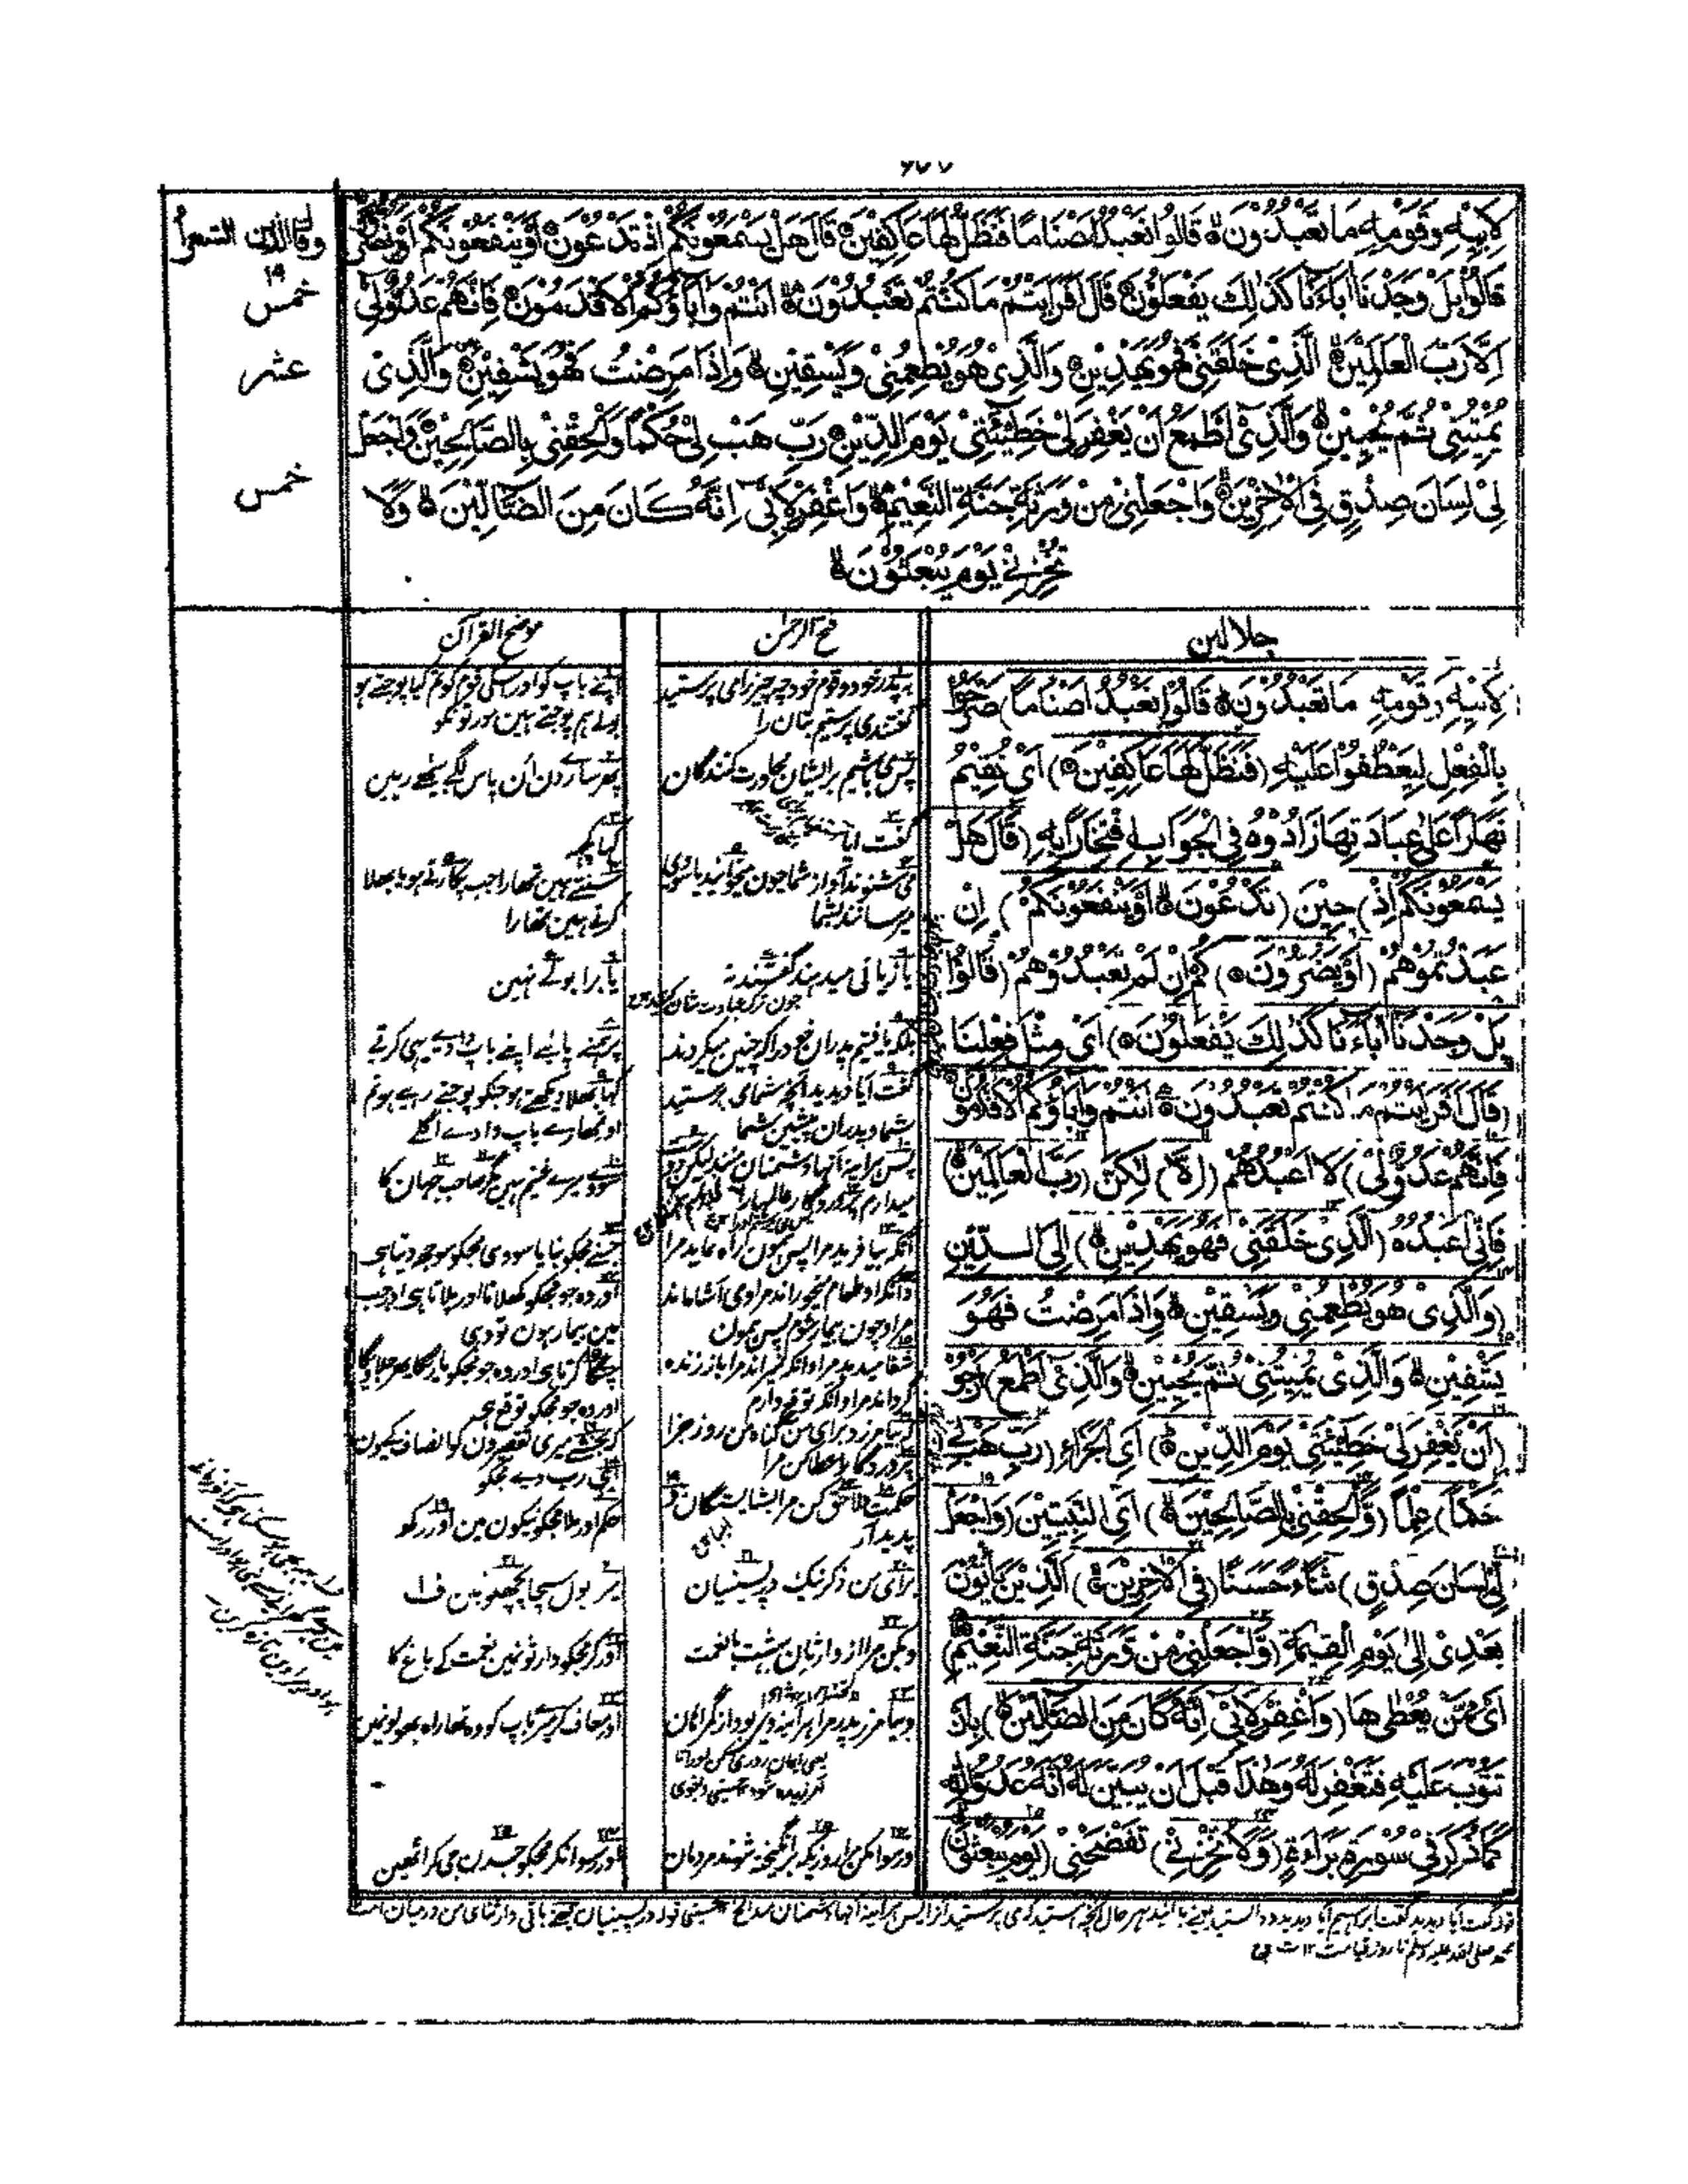 ۶۷۷
وقال الذين الشعرأ
۱۹
خمس
عشر
خمس
لِأَبِيْهِ وَقَوْمِهٖ مَا تَعْبُدُوْنَ قَالُوْا نَعْبُدُ اَصْنَامًا فَنَظَلُّ لَهَا عَاكِفِيْنَ قَالَ هَلْ يَسْمَعُوْنَكُمْ اِذْ تَدْعُوْنَ اَوْ يَنْفَعُوْنَكُمْ اَوْ يَضُرُّوْنَ
قَالُوْا بَلْ وَجَدْنَا اٰبَآءَنَا كَذٰلِكَ يَفْعَلُوْنَ قَالَ اَفَرَاَيْتُمْ مَا كُنْتُمْ تَعْبُدُوْنَ اَنْتُمْ وَاٰبَآؤُكُمُ الْاَقْدَمُوْنَ فَاِنَّهُمْ عَدُوٌّ لِّيْ
اِلَّا رَبَّ الْعٰلَمِيْنَ الَّذِيْ خَلَقَنِيْ فَهُوَ يَهْدِيْنِ وَالَّذِيْ هُوَ يُطْعِمُنِيْ وَيَسْقِيْنِ وَاِذَا مَرِضْتُ فَهُوَ يَشْفِيْنِ وَالَّذِيْ
يُمِيْتُنِيْ ثُمَّ يُحْيِيْنِ وَالَّذِيْ اَطْمَعُ اَنْ يَّغْفِرَ لِيْ خَطِيْٓئَتِيْ يَوْمَ الدِّيْنِ رَبِّ هَبْ لِيْ حُكْمًا وَّاَلْحِقْنِيْ بِالصَّالِحِيْنَ وَاجْعَلْ
لِّيْ لِسَانَ صِدْقٍ فِي الْاٰخِرِيْنَ وَاجْعَلْنِيْ مِنْ وَّرَثَةِ جَنَّةِ النَّعِيْمِ وَاغْفِرْ لِاَبِيْ اِنَّهٗ كَانَ مِنَ الضَّآلِّيْنَ وَلَا
تُخْزِنِيْ يَوْمَ يُبْعَثُوْنَ
جلالين
لِأَبِيْهِ وَقَوْمِهٖ مَا تَعْبُدُوْنَ قَالُوْا نَعْبُدُ اَصْنَامًا) صَرَّحُوْا
بِالْفِعْلِ لِيَعْطِفُوْا عَلَيْهِ (فَنَظَلُّ لَهَا عَاكِفِيْنَ) اَيْ نُقِيْمُ
نَهَارًا عَلٰى عِبَادَتِهَا زَادُوْهُ فِي الْجَوَابِ اِفْتِخَارًا بِهٖ (قَالَ هَلْ
يَسْمَعُوْنَكُمْ اِذْ) حِيْنَ (تَدْعُوْنَ اَوْ يَنْفَعُوْنَكُمْ) اِنْ
عَبَدْتُمُوْهُمْ (اَوْ يَضُرُّوْنَ) كُمْ اِنْ لَمْ تَعْبُدُوْهُمْ (قَالُوْا
بَلْ وَجَدْنَا اٰبَآءَنَا كَذٰلِكَ يَفْعَلُوْنَ) اَيْ مِثْلَ فِعْلِنَا
(قَالَ اَفَرَاَيْتُمْ مَا كُنْتُمْ تَعْبُدُوْنَ اَنْتُمْ وَاٰبَآؤُكُمُ الْاَقْدَمُوْنَ
فَاِنَّهُمْ عَدُوٌّ لِّيْ) لَا اَعْبُدُهُمْ (اِلَّا) لٰكِنَّ (رَبَّ الْعٰلَمِيْنَ)
فَاِنِّيْ اَعْبُدُهٗ (الَّذِيْ خَلَقَنِيْ فَهُوَ يَهْدِيْنِ) اِلَى الدِّيْنِ
(وَالَّذِيْ هُوَ يُطْعِمُنِيْ وَيَسْقِيْنِ وَاِذَا مَرِضْتُ فَهُوَ
يَشْفِيْنِ وَالَّذِيْ يُمِيْتُنِيْ ثُمَّ يُحْيِيْنِ وَالَّذِيْ اَطْمَعُ) اَرْجُوْ
(اَنْ يَّغْفِرَ لِيْ خَطِيْٓئَتِيْ يَوْمَ الدِّيْنِ) اَيِ الْجَزَاءِ (رَبِّ هَبْ لِيْ
حُكْمًا) عِلْمًا (وَّاَلْحِقْنِيْ بِالصَّالِحِيْنَ) اَيِ النَّبِيِّيْنَ (وَاجْعَلْ
لِّيْ لِسَانَ صِدْقٍ) ثَنَاءً حَسَنًا (فِي الْاٰخِرِيْنَ) الَّذِيْنَ يَأْتُوْنَ
بَعْدِيْ اِلٰى يَوْمِ الْقِيٰمَةِ (وَاجْعَلْنِيْ مِنْ وَّرَثَةِ جَنَّةِ النَّعِيْمِ)
اَيْ مِمَّنْ يُعْطٰىهَا (وَاغْفِرْ لِاَبِيْ اِنَّهٗ كَانَ مِنَ الضَّآلِّيْنَ) بِاَنْ
تَتُوْبَ عَلَيْهِ فَتَغْفِرَ لَهٗ وَهٰذَا قَبْلَ اَنْ يَّتَبَيَّنَ لَهٗ اَنَّهٗ عَدُوٌّ لِلّٰهِ
كَمَا ذُكِرَ فِيْ سُوْرَةِ بَرَاءَةٍ (وَلَا تُخْزِنِيْ) تَفْضَحْنِيْ (يَوْمَ يُبْعَثُوْنَ)
فتح الرحمن
پدر خود و قوم خود چه چیز را می پرستید
گفتند می پرستیم بتان را
پس می باشیم برایشان مجاورت کنندگان
گفت آیا
می شنوند آواز شما چون میخوانید یا سودی
میرسانند بشما
یا زیانی میدهند گفتند نه
بلکه یافتیم پدران خود را که چنین میکردند
گفت آیا دیدید آنچه شما می پرستید
شما و پدران پیشین شما
آنکه بیافرید مرا پس همون راه نماید مرا
و آنکه او طعام میخوراند مرا و می آشاماند
مرا و چون بیمار شوم پس همون
شفا میدهد مرا و آنکه بمیراند مرا باز زنده
گرداند مرا و آنکه توقع دارم
که بیامرزد برای من گناه من روز جزا
پروردگارا عطا کن مرا
برای من ذکر نیک در پسینیان
و بکن مرا از وارثان بهشت با نعمت
و رسوا مکن مرا روزیکه برانگیخته شوند مردمان
موضح القرآن
اپنے باپ کو اور اسکی قوم کو تم کیا پوجتے ہو
بولے ہم پوجتے ہین مورتونکو
پھر سارے دن ان پاس لگے بیٹھے رہین
کہا کچھ
سنتے ہین تمھارا جب پکارتے ہو یا بھلا
کرتے ہین تمھارا
یا برا بولے نہین
پر ہمنے پائے اپنے باپ دادے یہی کرتے
کہا بھلا دیکھتے ہو جنکو پوجتے رہے ہو تم
اور تمھارے باپ دادے اگلے
سو وے میرے غنیم ہین مگر صاحب جہان کا
جسنے مجکو بنایا سو وہی مجکو سوجھ دیتا ہی
اور وہ جو مجکو کھلاتا اور پلاتا ہی اور جب
مین بیمار ہون تو وہی
چنگا کرتا ہی اور وہ جو مجکو ماریگا پھر جلاویگا
اور وہ جو مجکو توقع ہی
کہ بخشے میری تقصیر دن انصاف کیون
ای رب دے مجکو
حکم اور ملا مجکو نیکون مین اور رکھ
میرا بول سچا پچھلونمین ف۱
اور کر مجکو وارثونمین نعمت کے باغ کا
اور معاف کر میرے باپ کو وہ تھا راہ بھولونمین
اور رسوا نکر مجکو جسدن جی کر اٹھین
محمد صلی الله علیه وسلم تا روز قیامت ۱۲